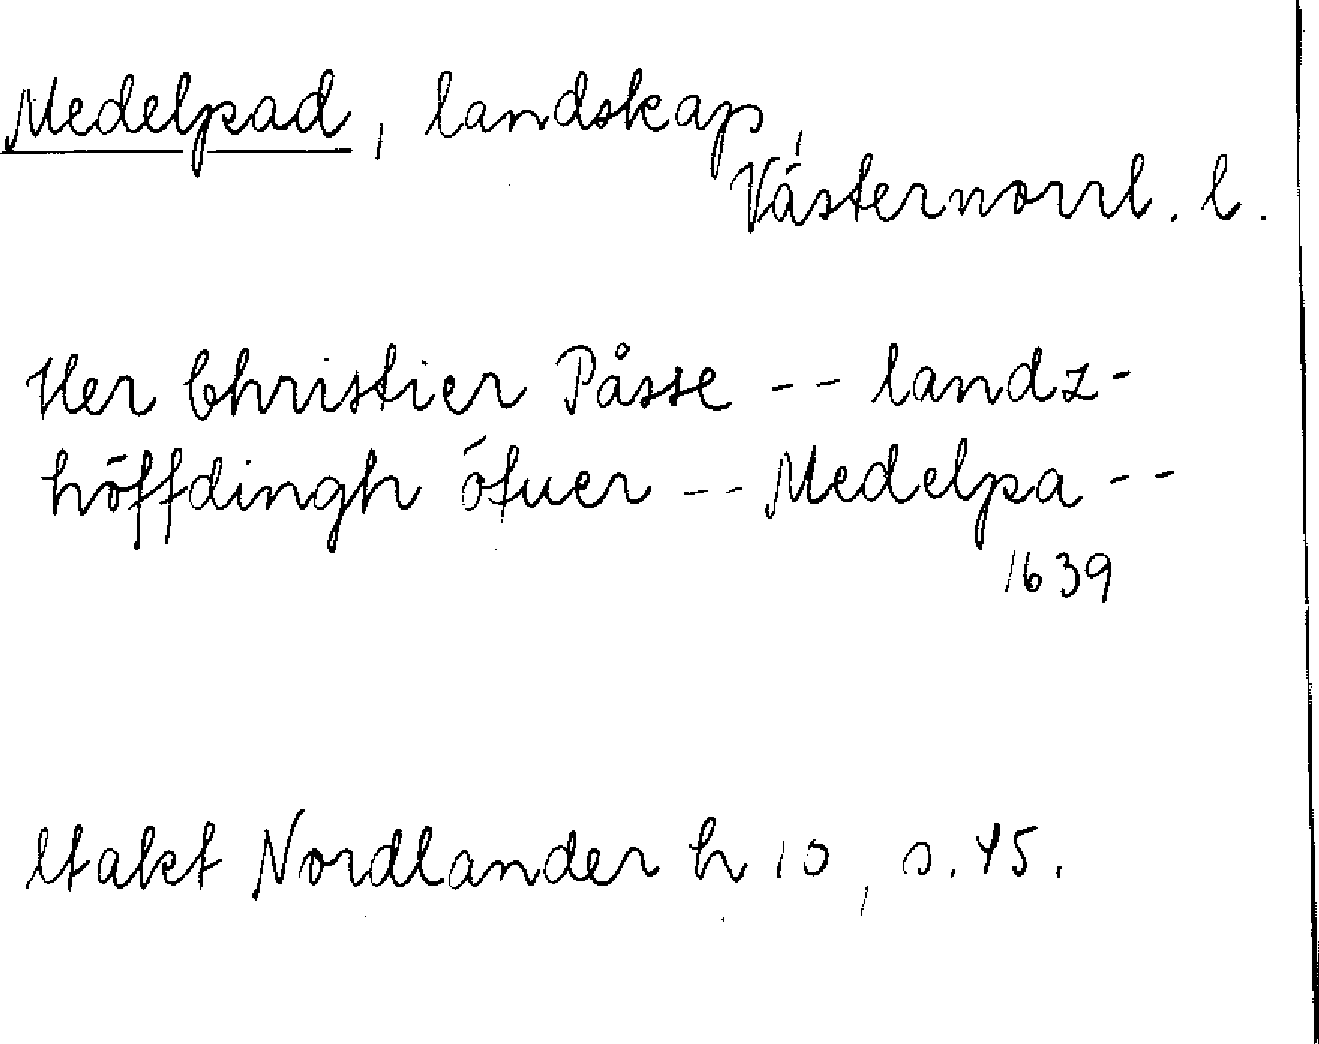 Medelpad, landskap,
Västernorrl. l.
Her Christier Påsse -- landz-
höffdingh öfuer -- Medelpa --
1639
Utakt Nordlander h 10, s. 45.